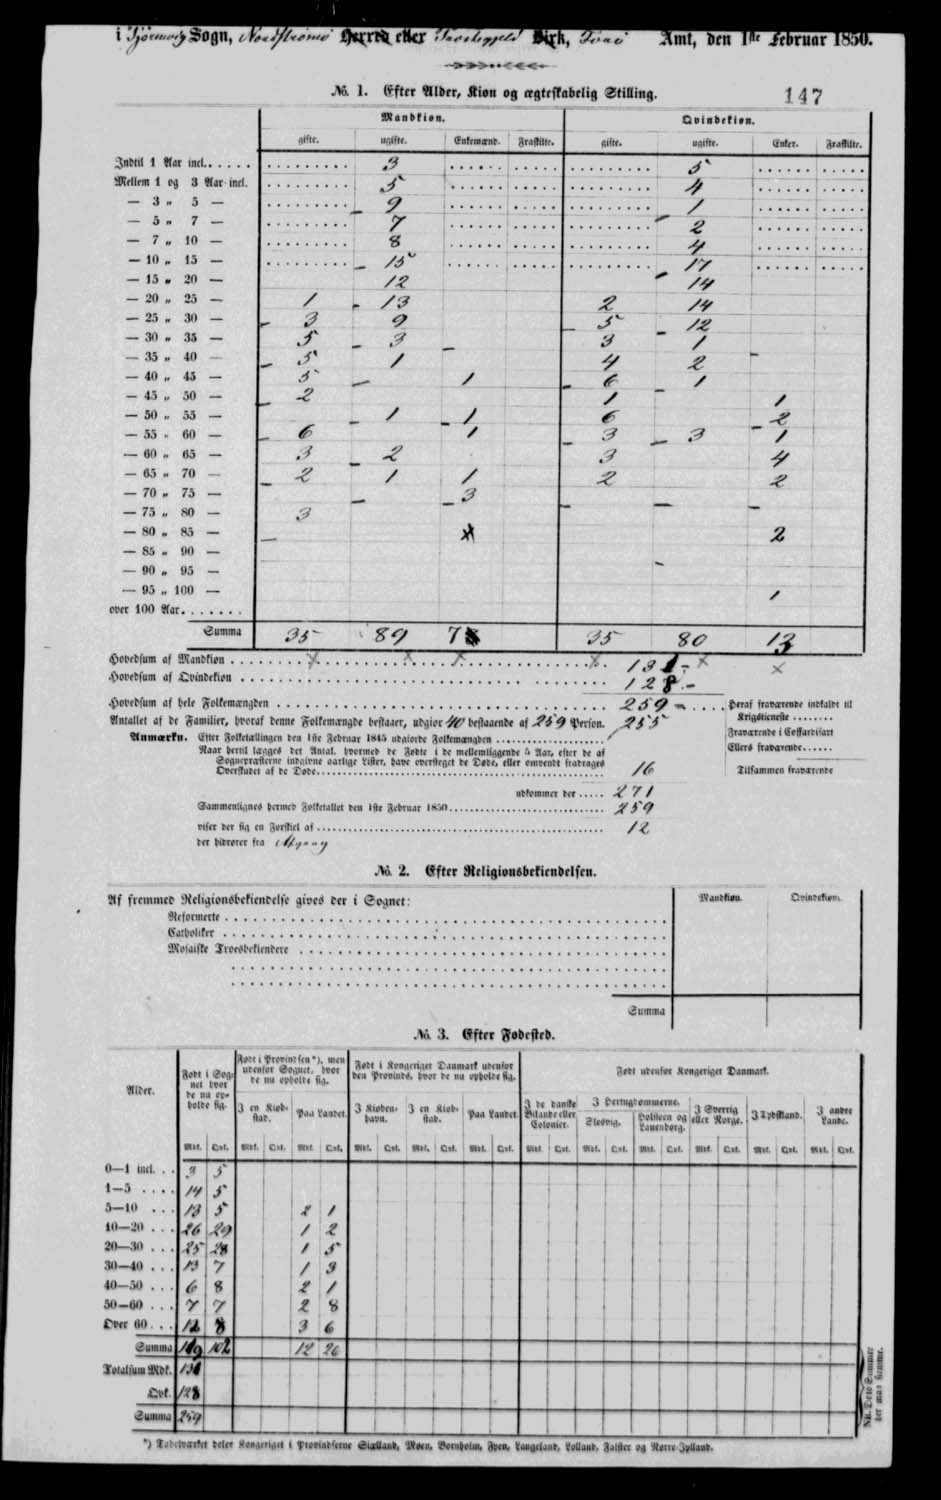 i Tjörnevig Sogn, Nordströmö Herred eller Provstegjeld Birk, Færö Amt, den 1ste Februar 1850.
No. 1. Efter Alder, Kion og ægteskabelig Stilling.
147
Mandkion. Qvindekion.
gifte. ugifte. Enkemænd. Fraskilte. gifte. ugifte. Enker. Fraskilte.
Indtil 1 Aar incl. 3 5
Mellem 1 og 3 Aar incl. 5 4
— 3 „ 5 — 9 1
— 5 „ 7 — 7 2
— 7 „ 10 — 8 4
— 10 „ 15 — 15 17
— 15 „ 20 — 12 14
— 20 „ 25 — 1 13 2 14
— 25 „ 30 — 3 9 5 12
— 30 „ 35 — 5 3 3 1
— 35 „ 40 — 5 1 4 2
— 40 „ 45 — 5 1 6 1
— 45 „ 50 — 2 1 1
— 50 „ 55 — 1 1 6 2
— 55 „ 60 — 6 1 3 3 1
— 60 „ 65 — 3 2 3 4
— 65 „ 70 — 2 1 1 2 2
— 70 „ 75 — 3
— 75 „ 80 — 3
— 80 „ 85 — 2
— 85 „ 90 —
— 90 „ 95 —
— 95 „ 100 — 1
over 100 Aar.
Summa 35 89 7 35 80 13
Hovedsum af Mandkion 131
Hovedsum af Qvindekion 128
Hovedsum af hele Folkemængden 259
Antallet af de Familier, hvoraf denne Folkemængde bestaaer, udgior 40 bestaaende af 259 Person.
Anmærkn. Efter Folketællingen den 1ste Februar 1845 udgiorde Folkemængden 255
Naar hertil lægges det Antal, hvormed de Fødte i de mellemliggende 5 Aar, efter de af
Sognepræsterne indgivne aarlige Lister, have oversteget de Døde, eller omvendt fradrages
Overskudet af de Døde 16
udkommer der 271
Sammenlignes hermed Folketallet den 1ste Februar 1850 259
viser der sig en Forskiel af 12
der hidrører fra Afgang
Heraf fraværende indkaldt til
Krigstieneste
Fraværende i Coffardifart
Ellers fraværende
Tilsammen fraværende
No. 2. Efter Religionsbekiendelsen.
Mandkion. Qvindekion.
Af fremmed Religionsbekiendelse gives der i Sognet:
Reformerte
Catholiker
Mosaiske Troesbekiendere
Summa
No. 3. Efter Fødested.
Alder.
Født i Sognet hvor de nu opholde sig.
Født i Provindsen*), men udenfor Sognet, hvor de nu opholde sig.
Født i Kongeriget Danmark udenfor den Provinds, hvor de nu opholde sig.
Født udenfor Kongeriget Danmark.
I en Kiøbstad. Paa Landet. I Kiøbenhavn. I en Kiøbstad. Paa Landet. I de danske Bilande eller Colonier. I Hertugdømmerne. Slesvig. Holsteen og Lauenborg. I Sverrig eller Norge. I Tydskland. I andre Lande.
Mdk. Qvk. Mdk. Qvk. Mdk. Qvk. Mdk. Qvk. Mdk. Qvk. Mdk. Qvk. Mdk. Qvk. Mdk. Qvk. Mdk. Qvk. Mdk. Qvk. Mdk. Qvk. Mdk. Qvk.
0—1 incl. 3 5
1—5 14 5
5—10 13 5 2 1
10—20 26 29 1 2
20—30 25 28 1 5
30—40 13 7 1 3
40—50 6 8 2 1
50—60 7 7 2 8
Over 60 12 8 3 6
Summa 119 102 12 26
Totalsum Mdk. 131
Qvk. 128
Summa 259
NB. Disse Summer der maa stemme.
*) Tabelværket deler Kongeriget i Provindserne Siælland, Møen, Bornholm, Fyen, Langeland, Lolland, Falster og Nørre-Jylland.